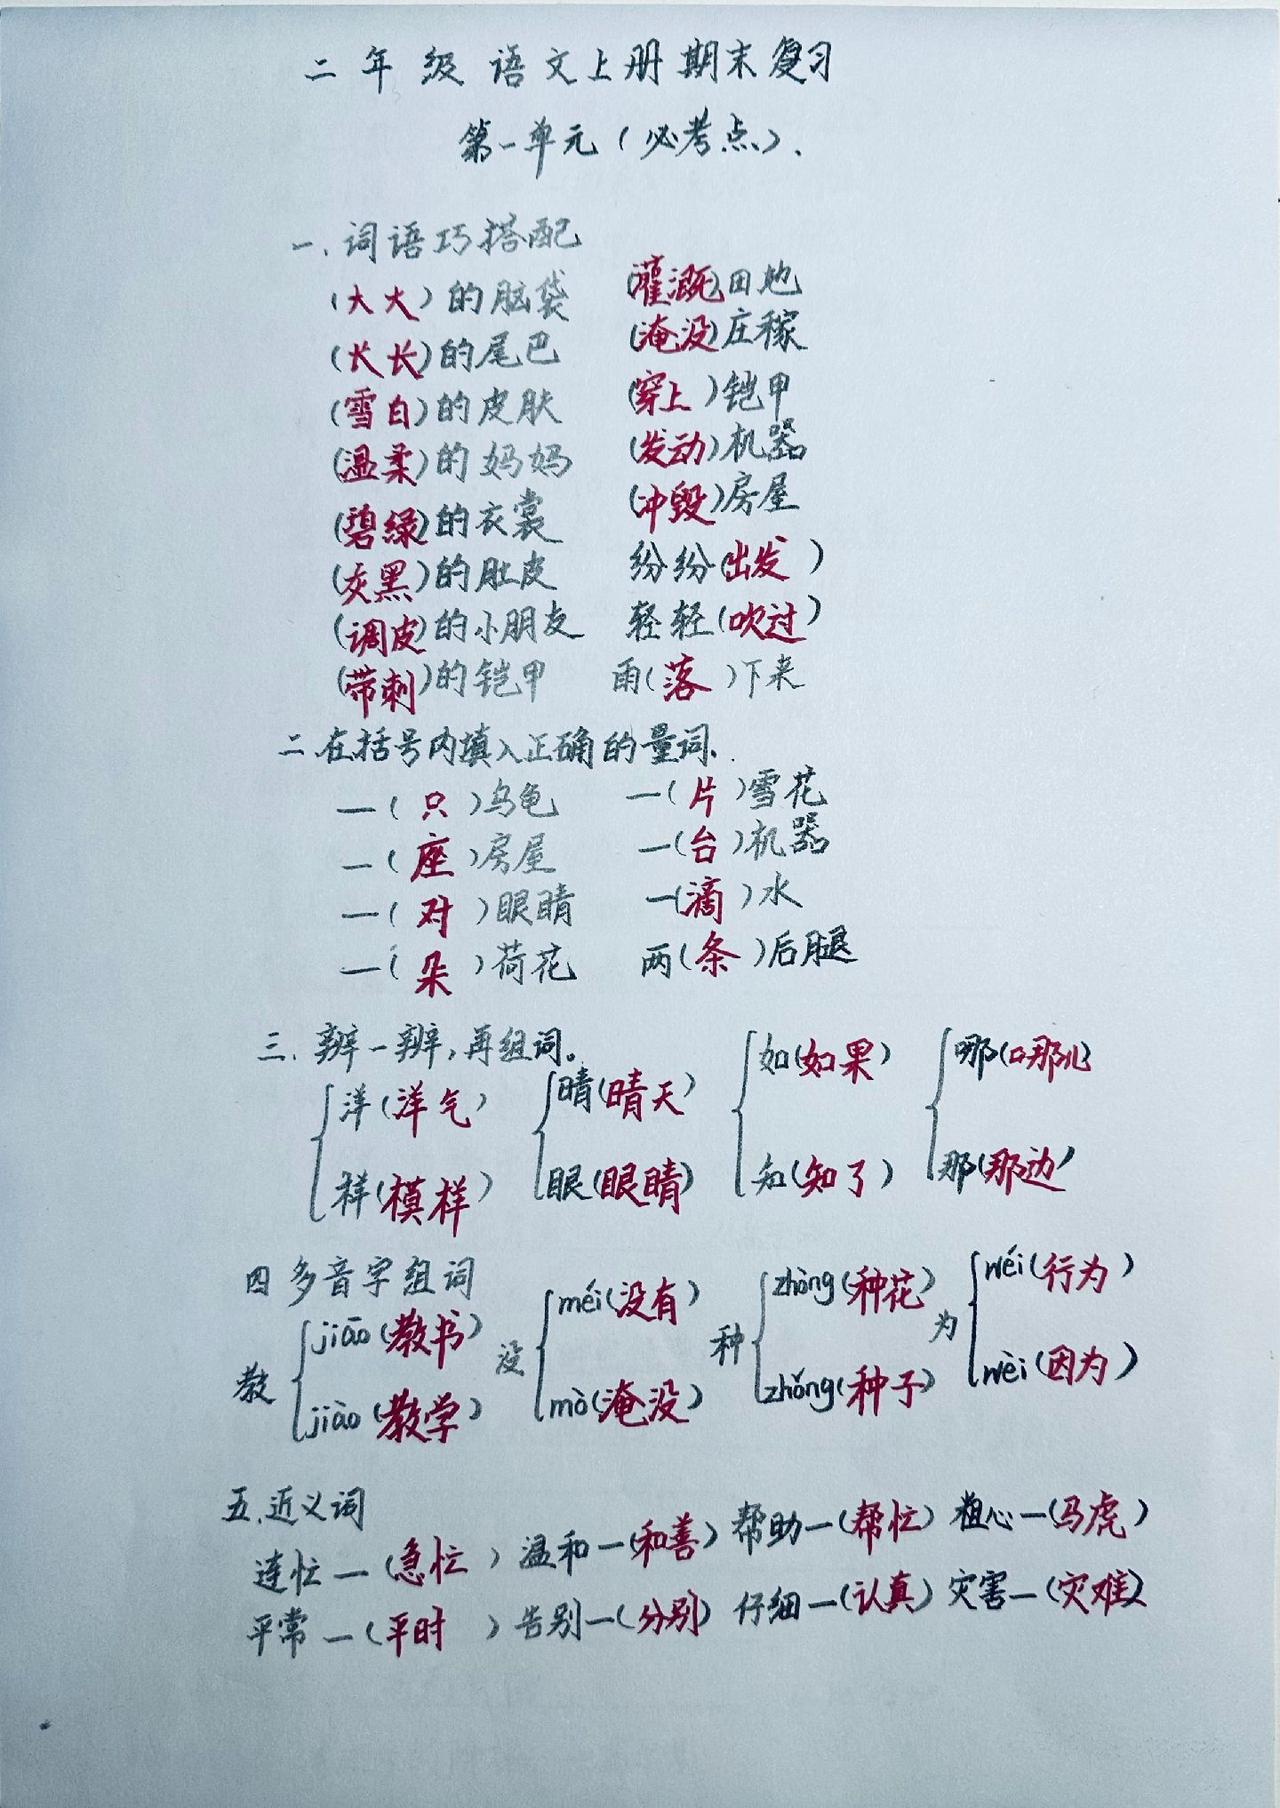 二年级语文上册期末复习
第一单元(必考点).
一.词语巧搭配
(大大)的脑袋 (灌溉)田地
(长长)的尾巴 (淹没)庄稼
(雪白)的皮肤 (穿上)铠甲
(温柔)的妈妈 (发动)机器
(碧绿)的衣裳 (冲毁)房屋
(灰黑)的肚皮 纷纷(出发)
(调皮)的小朋友 轻轻(吹过)
(带刺)的铠甲 雨(落)下来
二.在括号内填入正确的量词.
一(只)乌龟 一(片)雪花
一(座)房屋 一(台)机器
一(对)眼睛 一(滴)水
一(朵)荷花 两(条)后腿
三.辨一辨,再组词。
洋(洋气) 晴(晴天) 如(如果) 哪(哪儿)
样(模样) 眼(眼睛) 知(知了) 那(那边)
四 多音字组词
教 jiāo(教书) 没 méi(没有) 种 zhòng(种花) 为 wéi(行为)
jiào(教学) mò(淹没) zhǒng(种子) wèi(因为)
五.近义词
连忙—(急忙) 温和—(和善) 帮助—(帮忙) 粗心—(马虎)
平常—(平时) 告别—(分别) 仔细—(认真) 灾害—(灾难)